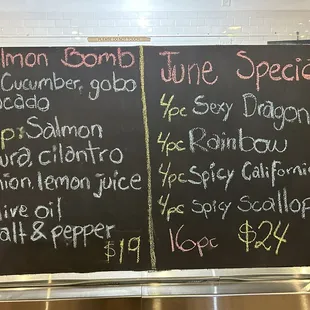 PLEASE DO NOT TOUCH
lmon Bomb
Cucumber, gobo
ocado
p: Salmon
ura, cilantro
nion, lemon juice
live oil
alt & pepper
$19
June Specia
4pc Sexy Dragon
4pc Rainbow
4pc Spicy Californi
4pc Spicy Scallop
16pc $24